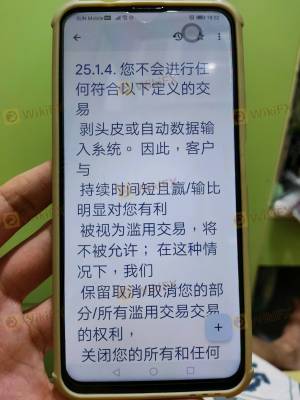 SUN Mobile
18:52
25.1.4. 您不会进行任
何符合以下定义的交
易
剥头皮或自动数据输
入系统。因此，客户
与
持续时间短且赢/输比
明显对您有利
被视为滥用交易，将
不被允许；在这种情
况下，我们
保留取消/取消您的部
分/所有滥用交易交易
的权利，
关闭您的所有和任何
+
WikiFX